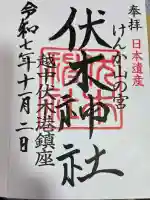 奉拝
日本遺産
けんか山の宮
伏木神社
越中伏木港鎮座
令和七年十一月二日